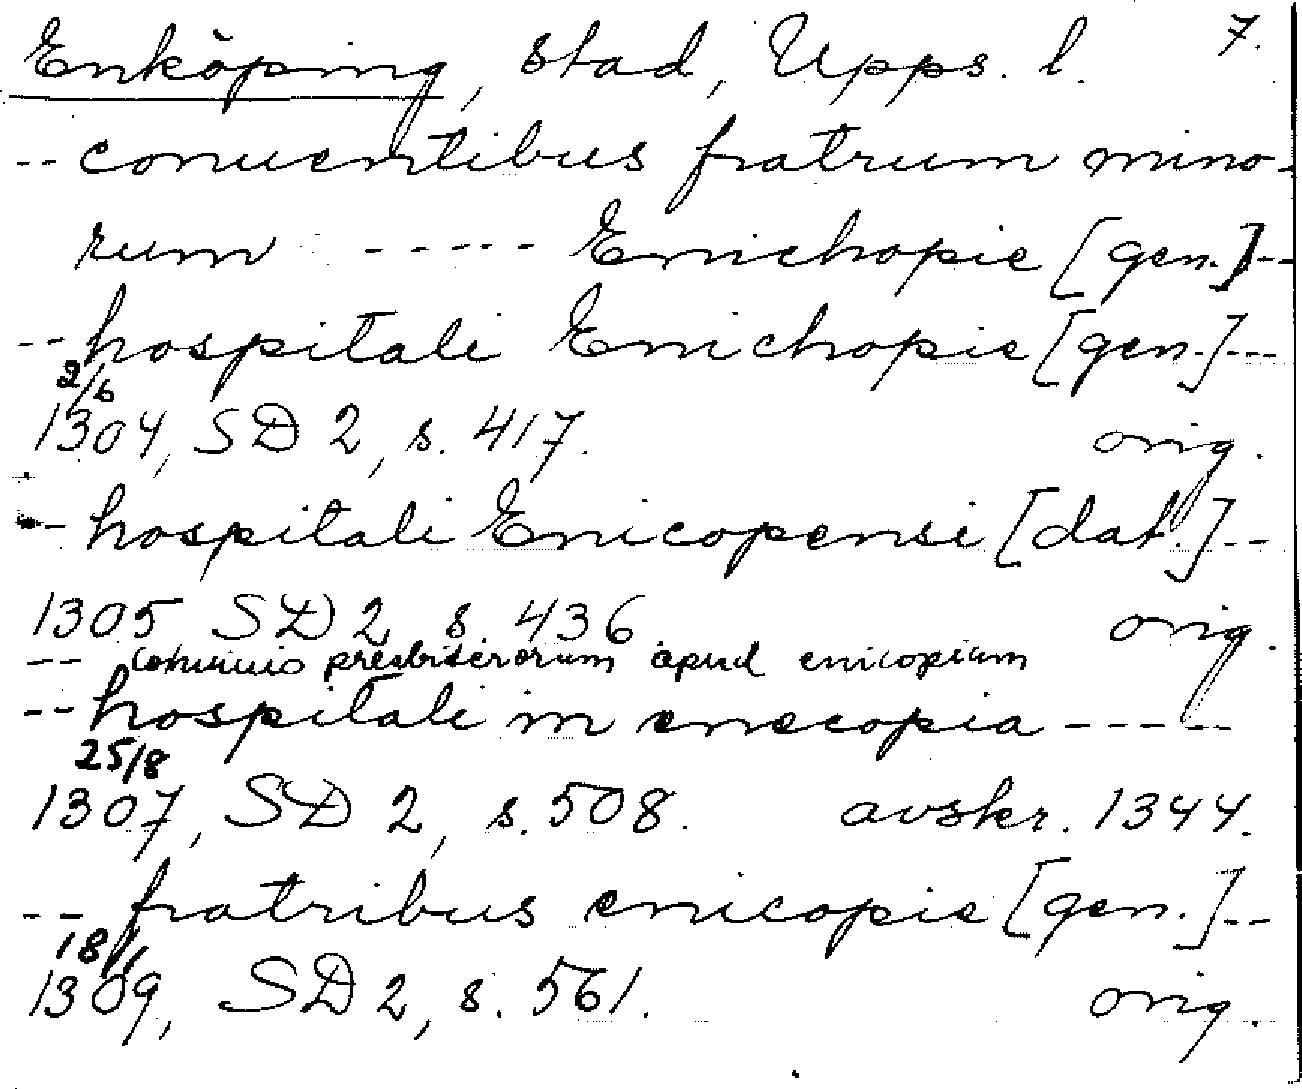 Enköping, stad, Upps. l. 7.
-- conuentibus fratrum mino-
rum ----- Enichopie [gen.]--
-- hospitali Enichopie [gen.]---
2/6
1304, SD 2, s. 417. orig.
-- hospitali Enicopensi [dat.]--
1305 SD 2 s. 436 orig.
-- conuiuio presbiterorum apud enicopium
-- hospitali in enecopia -----
25/8
1307, SD 2, s. 508. avskr. 1344.
-- fratribus enicopie [gen.]--
18/1
1309, SD 2, s. 561. orig.